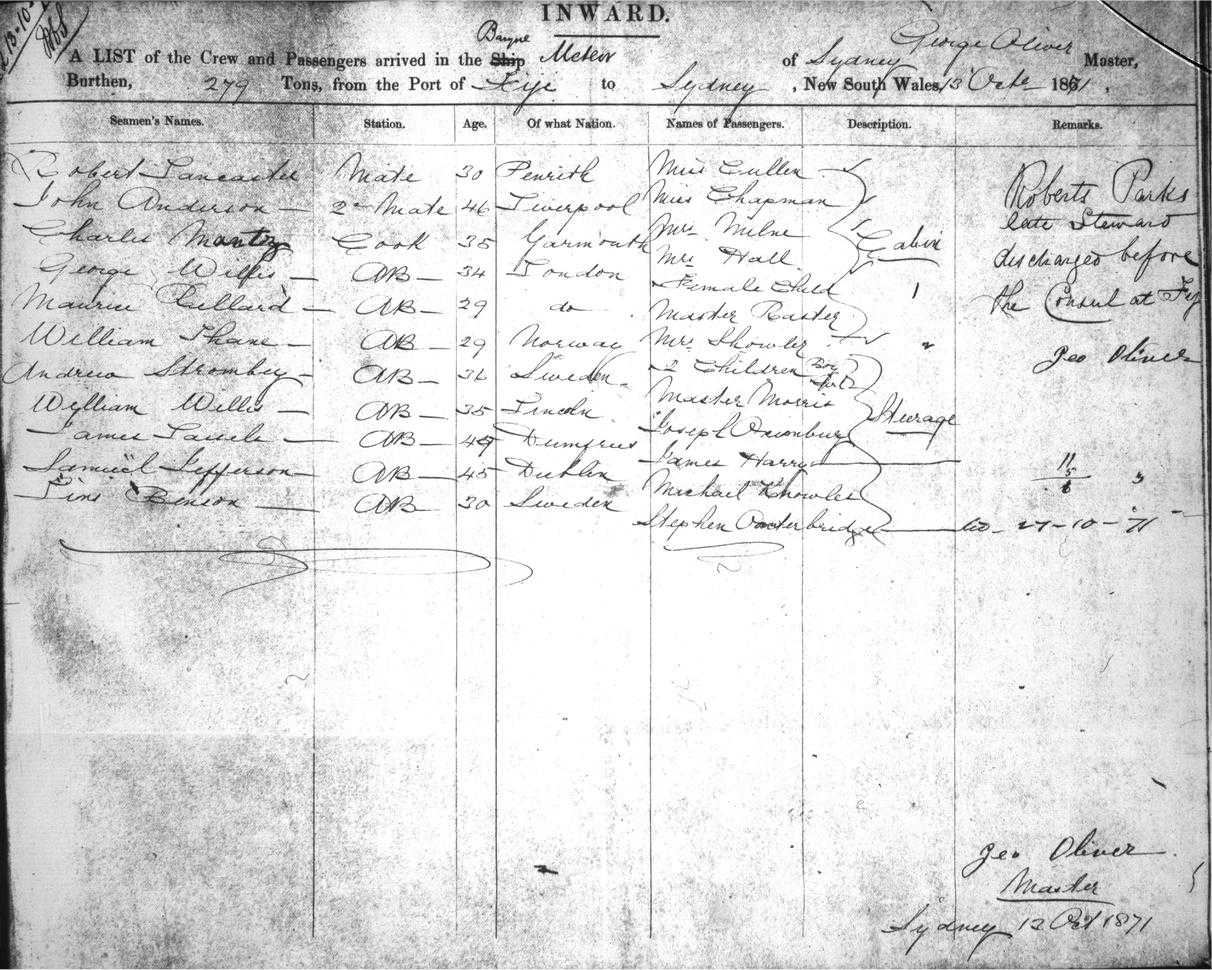 INWARD.
Barque
A LIST of the Crew and Passengers arrived in the Ship Meteor of Sydney George Oliver Master,
Burthen, 279 Tons, from the Port of Fiji to Sydney, New South Wales, 13 Octr 1871,
Seamen's Names. Station. Age. Of what Nation. Names of Passengers. Description. Remarks.
Robert Lancaster Mate 30 Penrith Miss Cullen
John Anderson 2d Mate 46 Liverpool Miss Chapman
Charles Cook 35 Yarmouth Mrs Milne Cabin
George Willis AB 34 London Mrs Hall
Female Child
Maurice AB 29 do Master
William Thane AB 29 Norway Mrs Showler "
2 Children Boy Girl
Andrew AB Sweden Master Morris
William Willis AB 35 Lincoln Joseph Steerage
James AB Dumfries James Harry
Samuel Jefferson AB 45 Dublin Michael Knowles
Benson AB 30 Sweden Stephen 27-10-71
Roberts Parks
late Steward
discharged before
the Consul at Fiji
Geo Oliver
11
5
6
Geo Oliver
Master
Sydney 13 Oct 1871